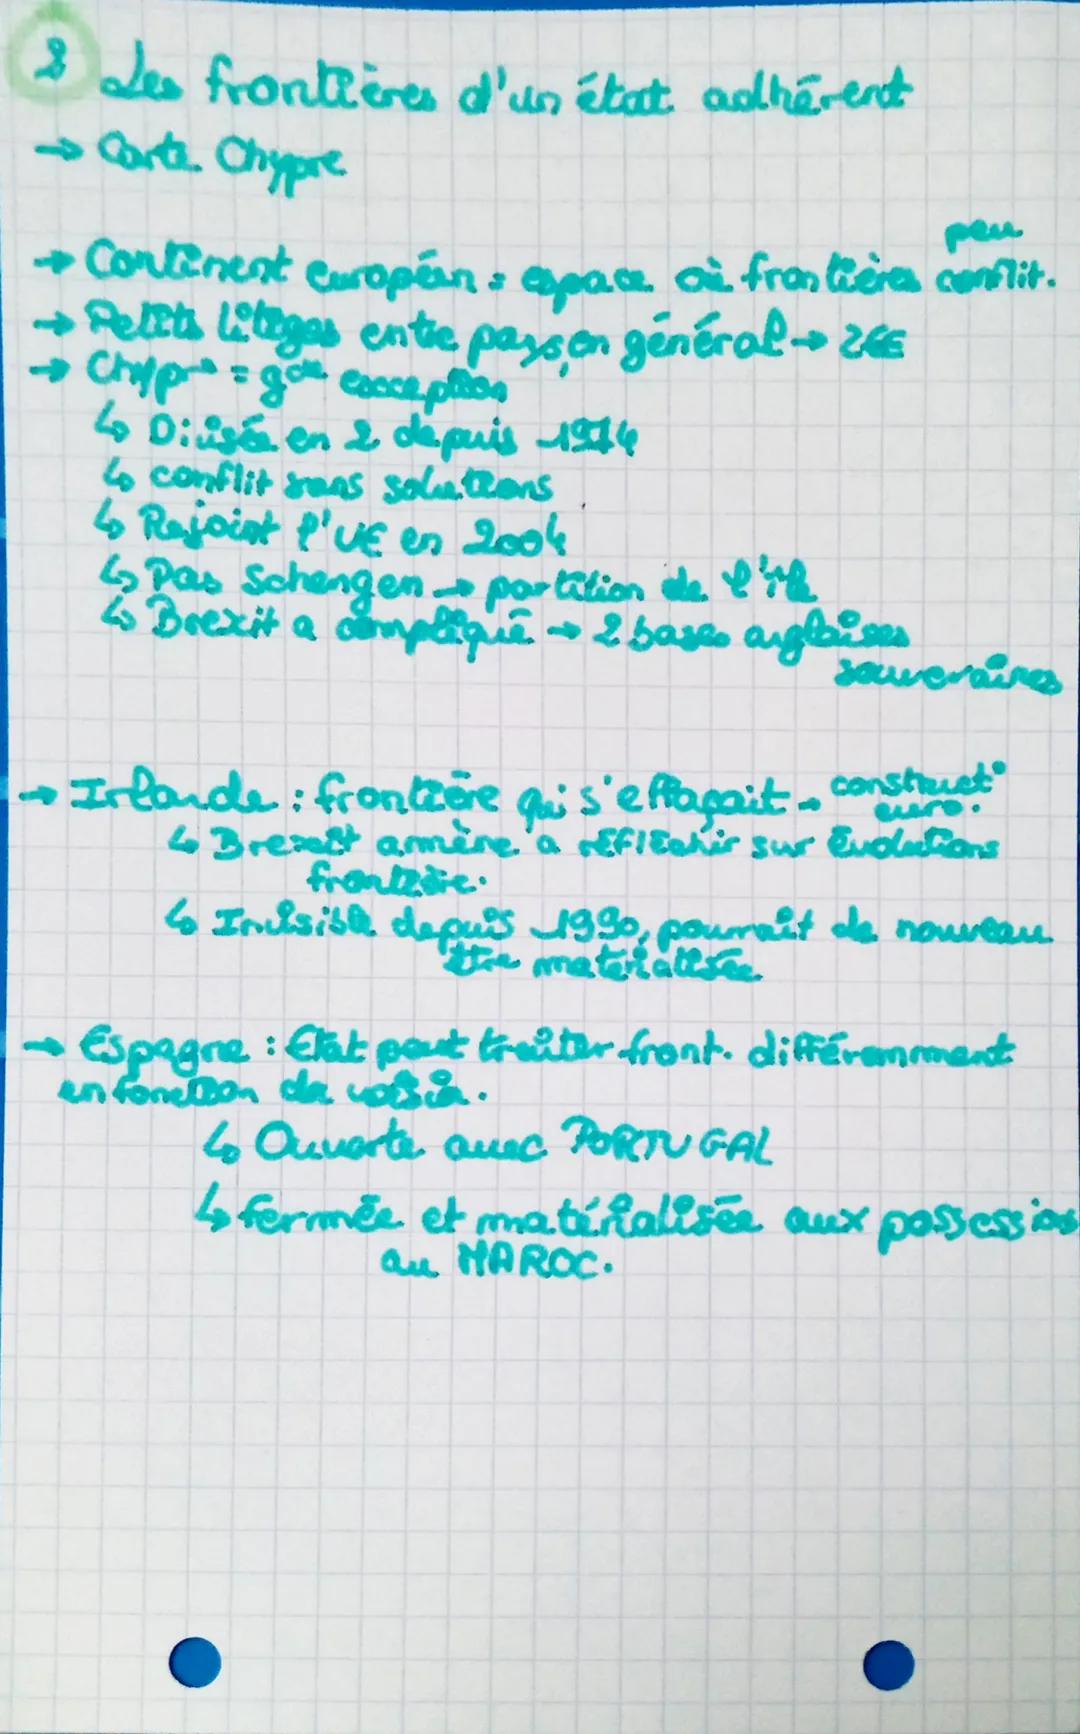 3 Les frontières d'un état adhérent
→ Carte Chypre
→ Continent européen = espace où frontières peu conflit.
→ Petits litiges entre pays, en général →
→ Chypre = gde exception
↳ Divisée en 2 depuis 1974
↳ conflit sans solutions
↳ Rejoint l'UE en 2004
↳ Pas Schengen → partition de l'île
↳ Brexit a compliqué → 2 bases anglaises
souveraines
→ Irlande : frontière qui s'effaçait → construct° euro.
↳ Brexit amène a réfléchir sur évolutions
frontière.
↳ Invisible depuis 1990, pourrait de nouveau
être matérialisée
→ Espagne : Etat peut traiter front. différemment
en fonction de voisin.
↳ Ouverte avec PORTUGAL
↳ fermée et matérialisée aux possessions
au MAROC.